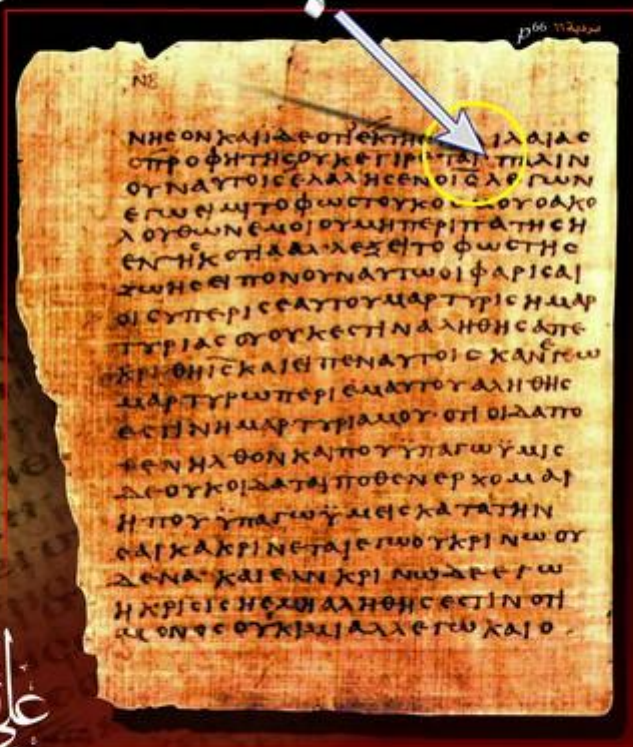 p⁶⁶ بردية٦٦
ΝΒ
ΝΗCΟΝΚΑΙΙΔΕΟΤΙΕΚΤΗC ΙΛΑΙΑC
ΟΠΡΟΦΗΤΗCΟΥΚΕΓΙΡΕΤΑΙ·ΠΑΛΙΝ
ΟΥΝΑΥΤΟΙCΕΛΑΛΗCΕΝΟΙCΛΕΓΩΝ
ΕΓΩΕΙΜΙΤΟΦΩCΤΟΥΚΟ ΟΥΟΑΚΟ
ΛΟΥΘΩΝΕΜΟΙΟΥΜΗΠΕΡΙΠΑΤΗCΗ
ΕΝΤΗCΚΟΤΙΑΑΛΛΕΞΕΙΤΟΦΩCΤΗC
ΖΩΗCΕΙΠΟΝΟΥΝΑΥΤΩΟΙΦΑΡΙCΑΙ
ΟΙCΥΠΕΡΙCΕΑΥΤΟΥΜΑΡΤΥΡΙCΗΜΑΡ
ΤΥΡΙΑCΟΥΟΥΚΕCΤΙΝΑΛΗΘΗCΑΠΕ
ΚΡΙΘΗΙCΚΑΙΕΙΠΕΝΑΥΤΟΙCΚΑΝΕΓΩ
ΜΑΡΤΥΡΩΠΕΡΙΕΜΑΥΤΟΥΑΛΗΘΗC
ΕCΤΙΝΗΜΑΡΤΥΡΙΑΜΟΥ·ΟΤΙΟΙΔΑΠΟ
ΘΕΝΗΛΘΟΝΚΑΙΠΟΥΫΠΑΓΩΫΜΙC
ΔΕΟΥΚΟΙΔΑΤΑΙΠΟΘΕΝΕΡΧΟΜΑΙ
ΗΠΟΥΫΠΑΓΩΫΜΕΙCΚΑΤΑΤΗΝ
CΑΡΚΑΚΡΙΝΕΤΑΙΕΓΩΟΥΚΡΙΝΩΟΥ
ΔΕΝΑ·ΚΑΙΕΑΝΚΡΙΝΩΔΕΕΓΩ
ΗΚΡΙCΙCΗΕΜΗΑΛΗΘΗCΕCΤΙΝΟΤΙ
ΜΟΝΟCΟΥΚΙΜΙΑΛΛΕΓΩΚΑΙΟ